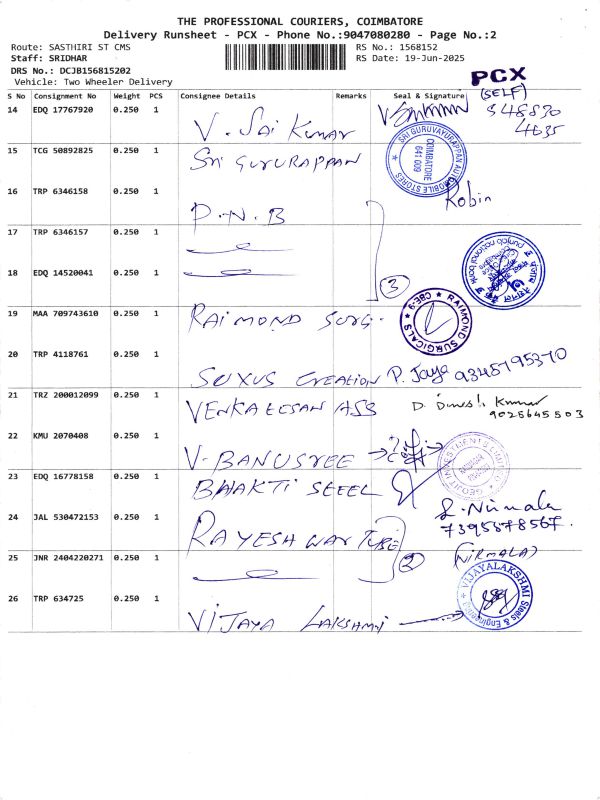 THE PROFESSIONAL COURIERS, COIMBATORE
Delivery Runsheet - PCX - Phone No.:9047080280 - Page No.:2
Route: SASTHIRI ST CMS
RS No.: 1568152
Staff: SRIDHAR
RS Date: 19-Jun-2025
DRS No.: DCJB156815202
Vehicle: Two Wheeler Delivery
PCX
S No Consignment No Weight PCS Consignee Details Remarks Seal & Signature
(SELF)
14 EDQ 17767920 0.250 1 V. Sai Kumar
15 TCG 50892825 0.250 1 Sri GURURAPPAN
SRI GURUVAYURAPPAN AUTOMOBILE STORES
COIMBATORE
641 009
16 TRP 6346158 0.250 1 P.N.B Robin
17 TRP 6346157 0.250 1
punjab national bank
18 EDQ 14520041 0.250 1
3
19 MAA 709743610 0.250 1 RAIMOND SURG.
RAIMOND SURGICALS CBE-9
20 TRP 4118761 0.250 1 SUXUS CREATION P. Jaya 9345795370
21 TRZ 200012099 0.250 1 VENKATESAN ASS D. Dinesh Kumar
9025645503
22 KMU 2070408 0.250 1 V-BANUSREE
23 EDQ 16778158 0.250 1 BHAKTI STEEL
24 JAL 530472153 0.250 1 RAYESHWAY TUBE
2
(NIRMALA)
25 JNR 2404220271 0.250 1
26 TRP 634725 0.250 1 VIJAYA LAKSHMI
VIJAYALAKSHMI Steels & Engineering